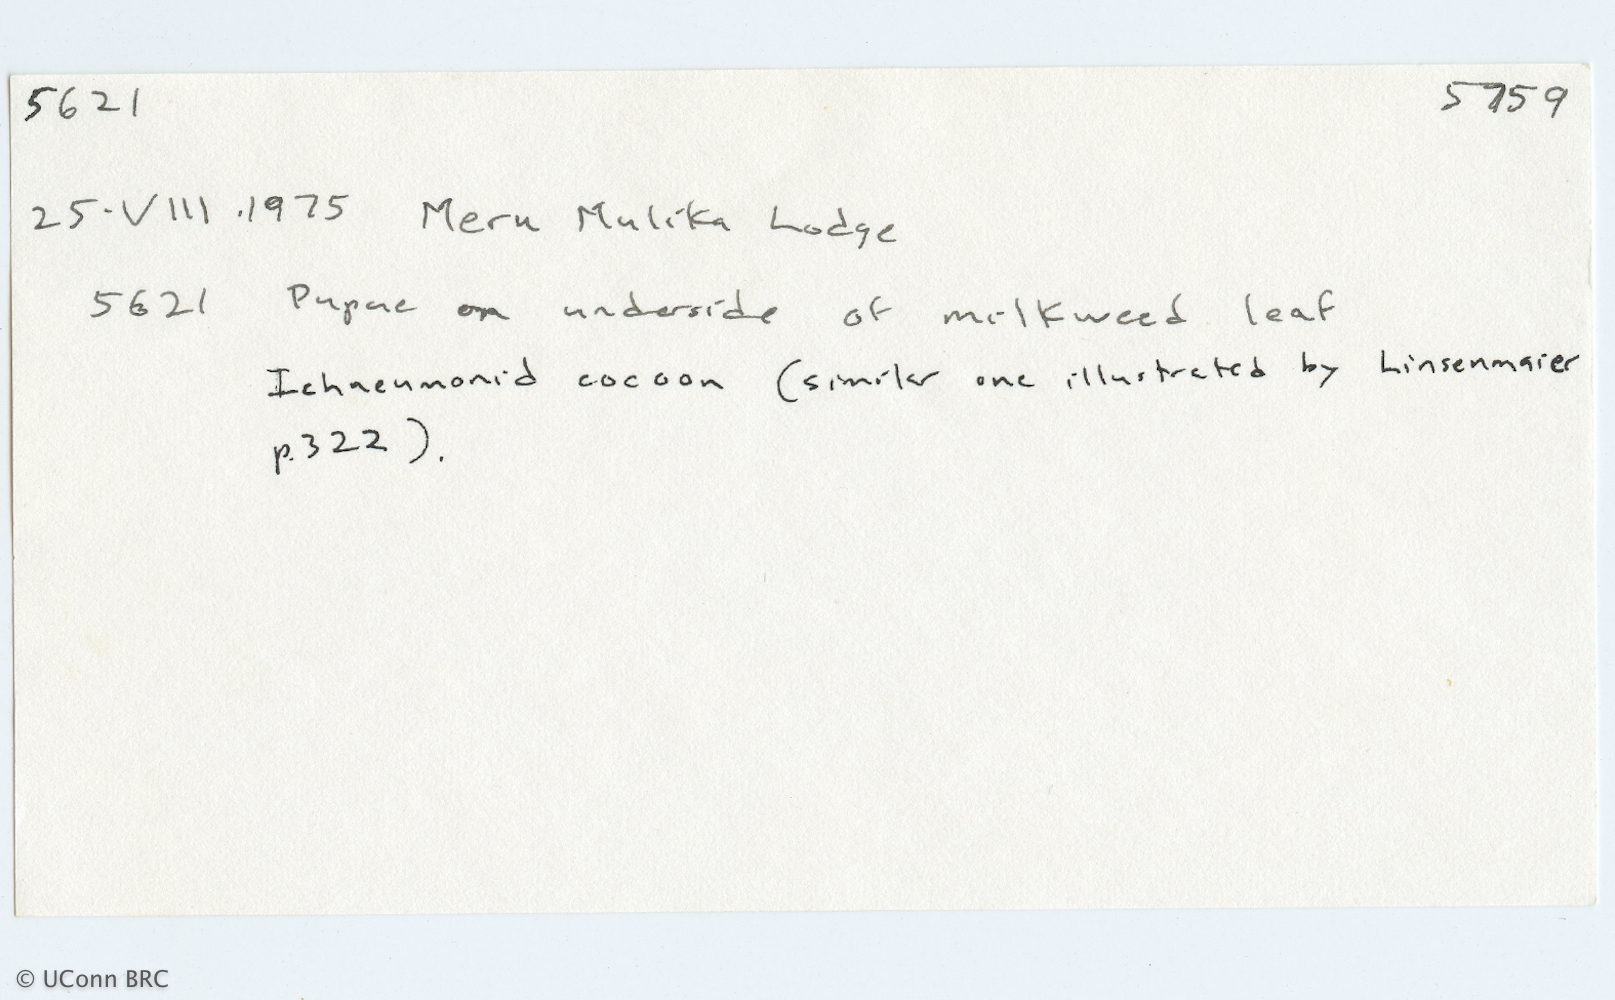 5621 5759
25.VIII.1975 Meru Mulika Lodge
5621 Pupae on underside of milkweed leaf
Ichneumonid cocoon (similar one illustrated by Linsenmaier
p.322).
© UConn BRC